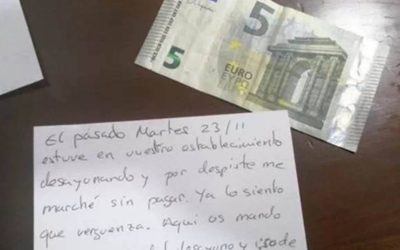 5
5
EURO
EYPΩ
El pasado Martes 23/11
estuve en vuestro establecimiento
desayunando y por despiste me
marché sin pagar. Ya lo siento
que verguenza. Aqui os mando
desayuno y